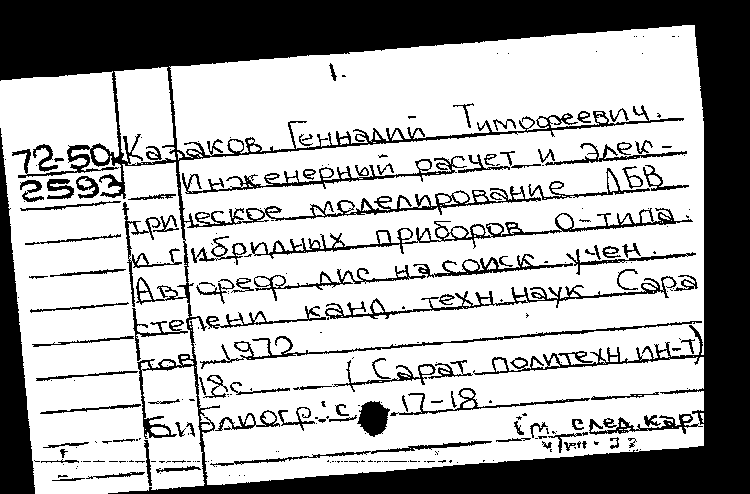 1.
72-50к Казаков, Геннадий Тимофеевич.
2593 Инженерный расчет и элек-
трическое моделирование ЛБВ
и гибридных приборов О-типа.
Автореф. дис на соиск. учен.
степени канд. техн. наук. Сара
тов, 1972.
18с. (Сарат. политехн. ин-т)
Библиогр.: с. 17-18.
См. след. карт